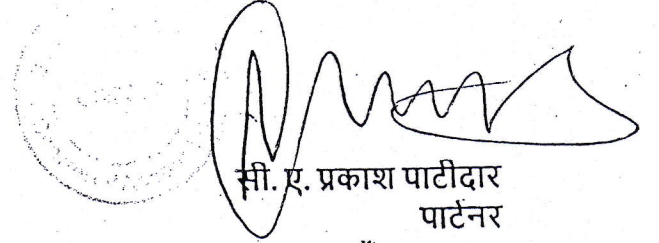 सी. ए. प्रकाश पाटीदार
पार्टनर